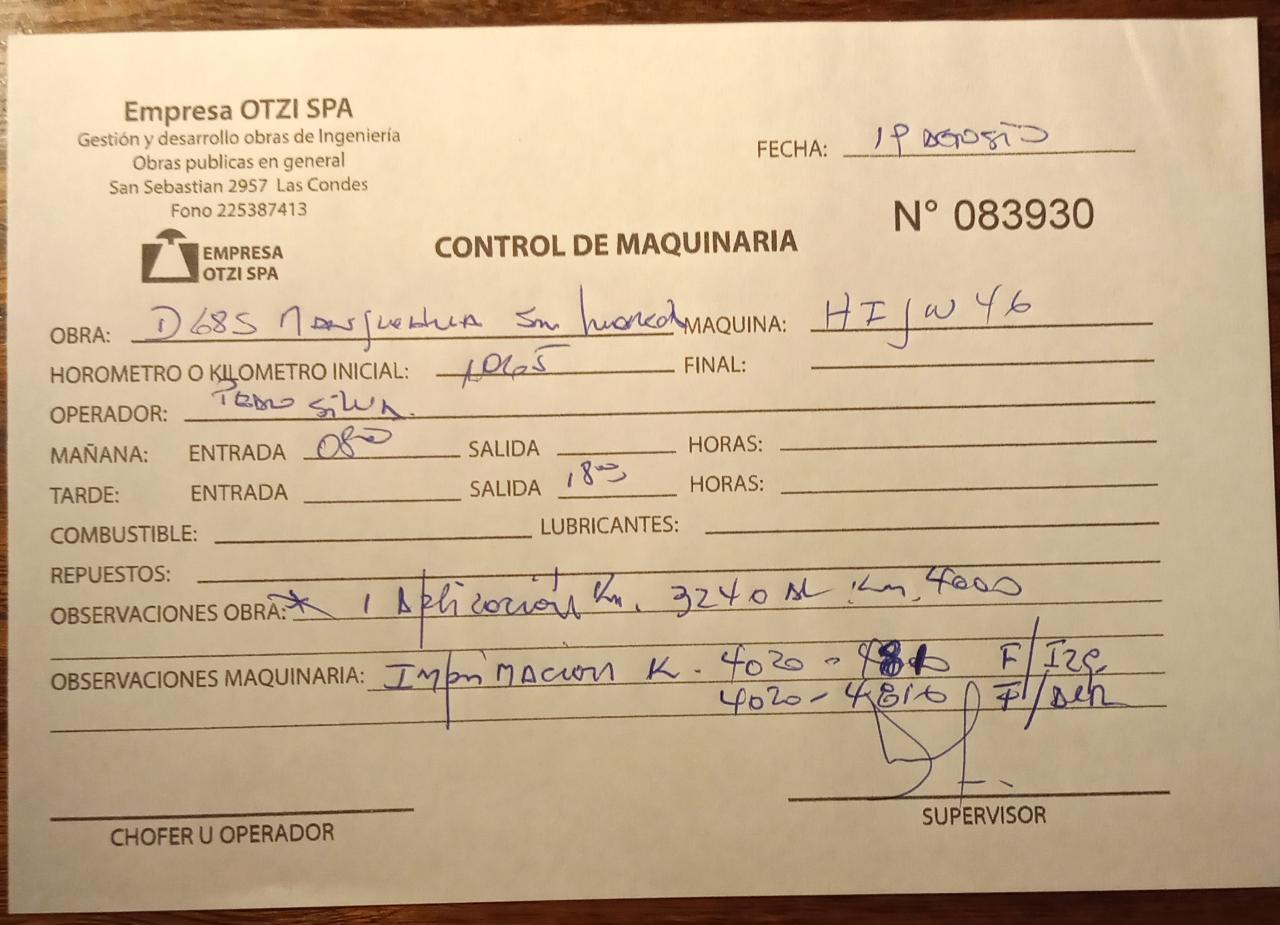 Empresa OTZI SPA
Gestión y desarrollo obras de Ingeniería
Obras publicas en general
San Sebastian 2957 Las Condes
Fono 225387413
EMPRESA
OTZI SPA
FECHA: 19 AGOSTO
N° 083930
CONTROL DE MAQUINARIA
OBRA: D685 San MAQUINA: HIJW 46
HOROMETRO O KILOMETRO INICIAL: FINAL:
OPERADOR: PEDRO SILVA.
MAÑANA: ENTRADA 0800 SALIDA HORAS:
TARDE: ENTRADA SALIDA 1800 HORAS:
COMBUSTIBLE: LUBRICANTES:
REPUESTOS:
OBSERVACIONES OBRA: * 1 Aplicación Km. 3240 AL Km. 4000
OBSERVACIONES MAQUINARIA: IMPRIMACION K. 4020 - F/IZQ
4020 - 4810 F/DER
CHOFER U OPERADOR
SUPERVISOR